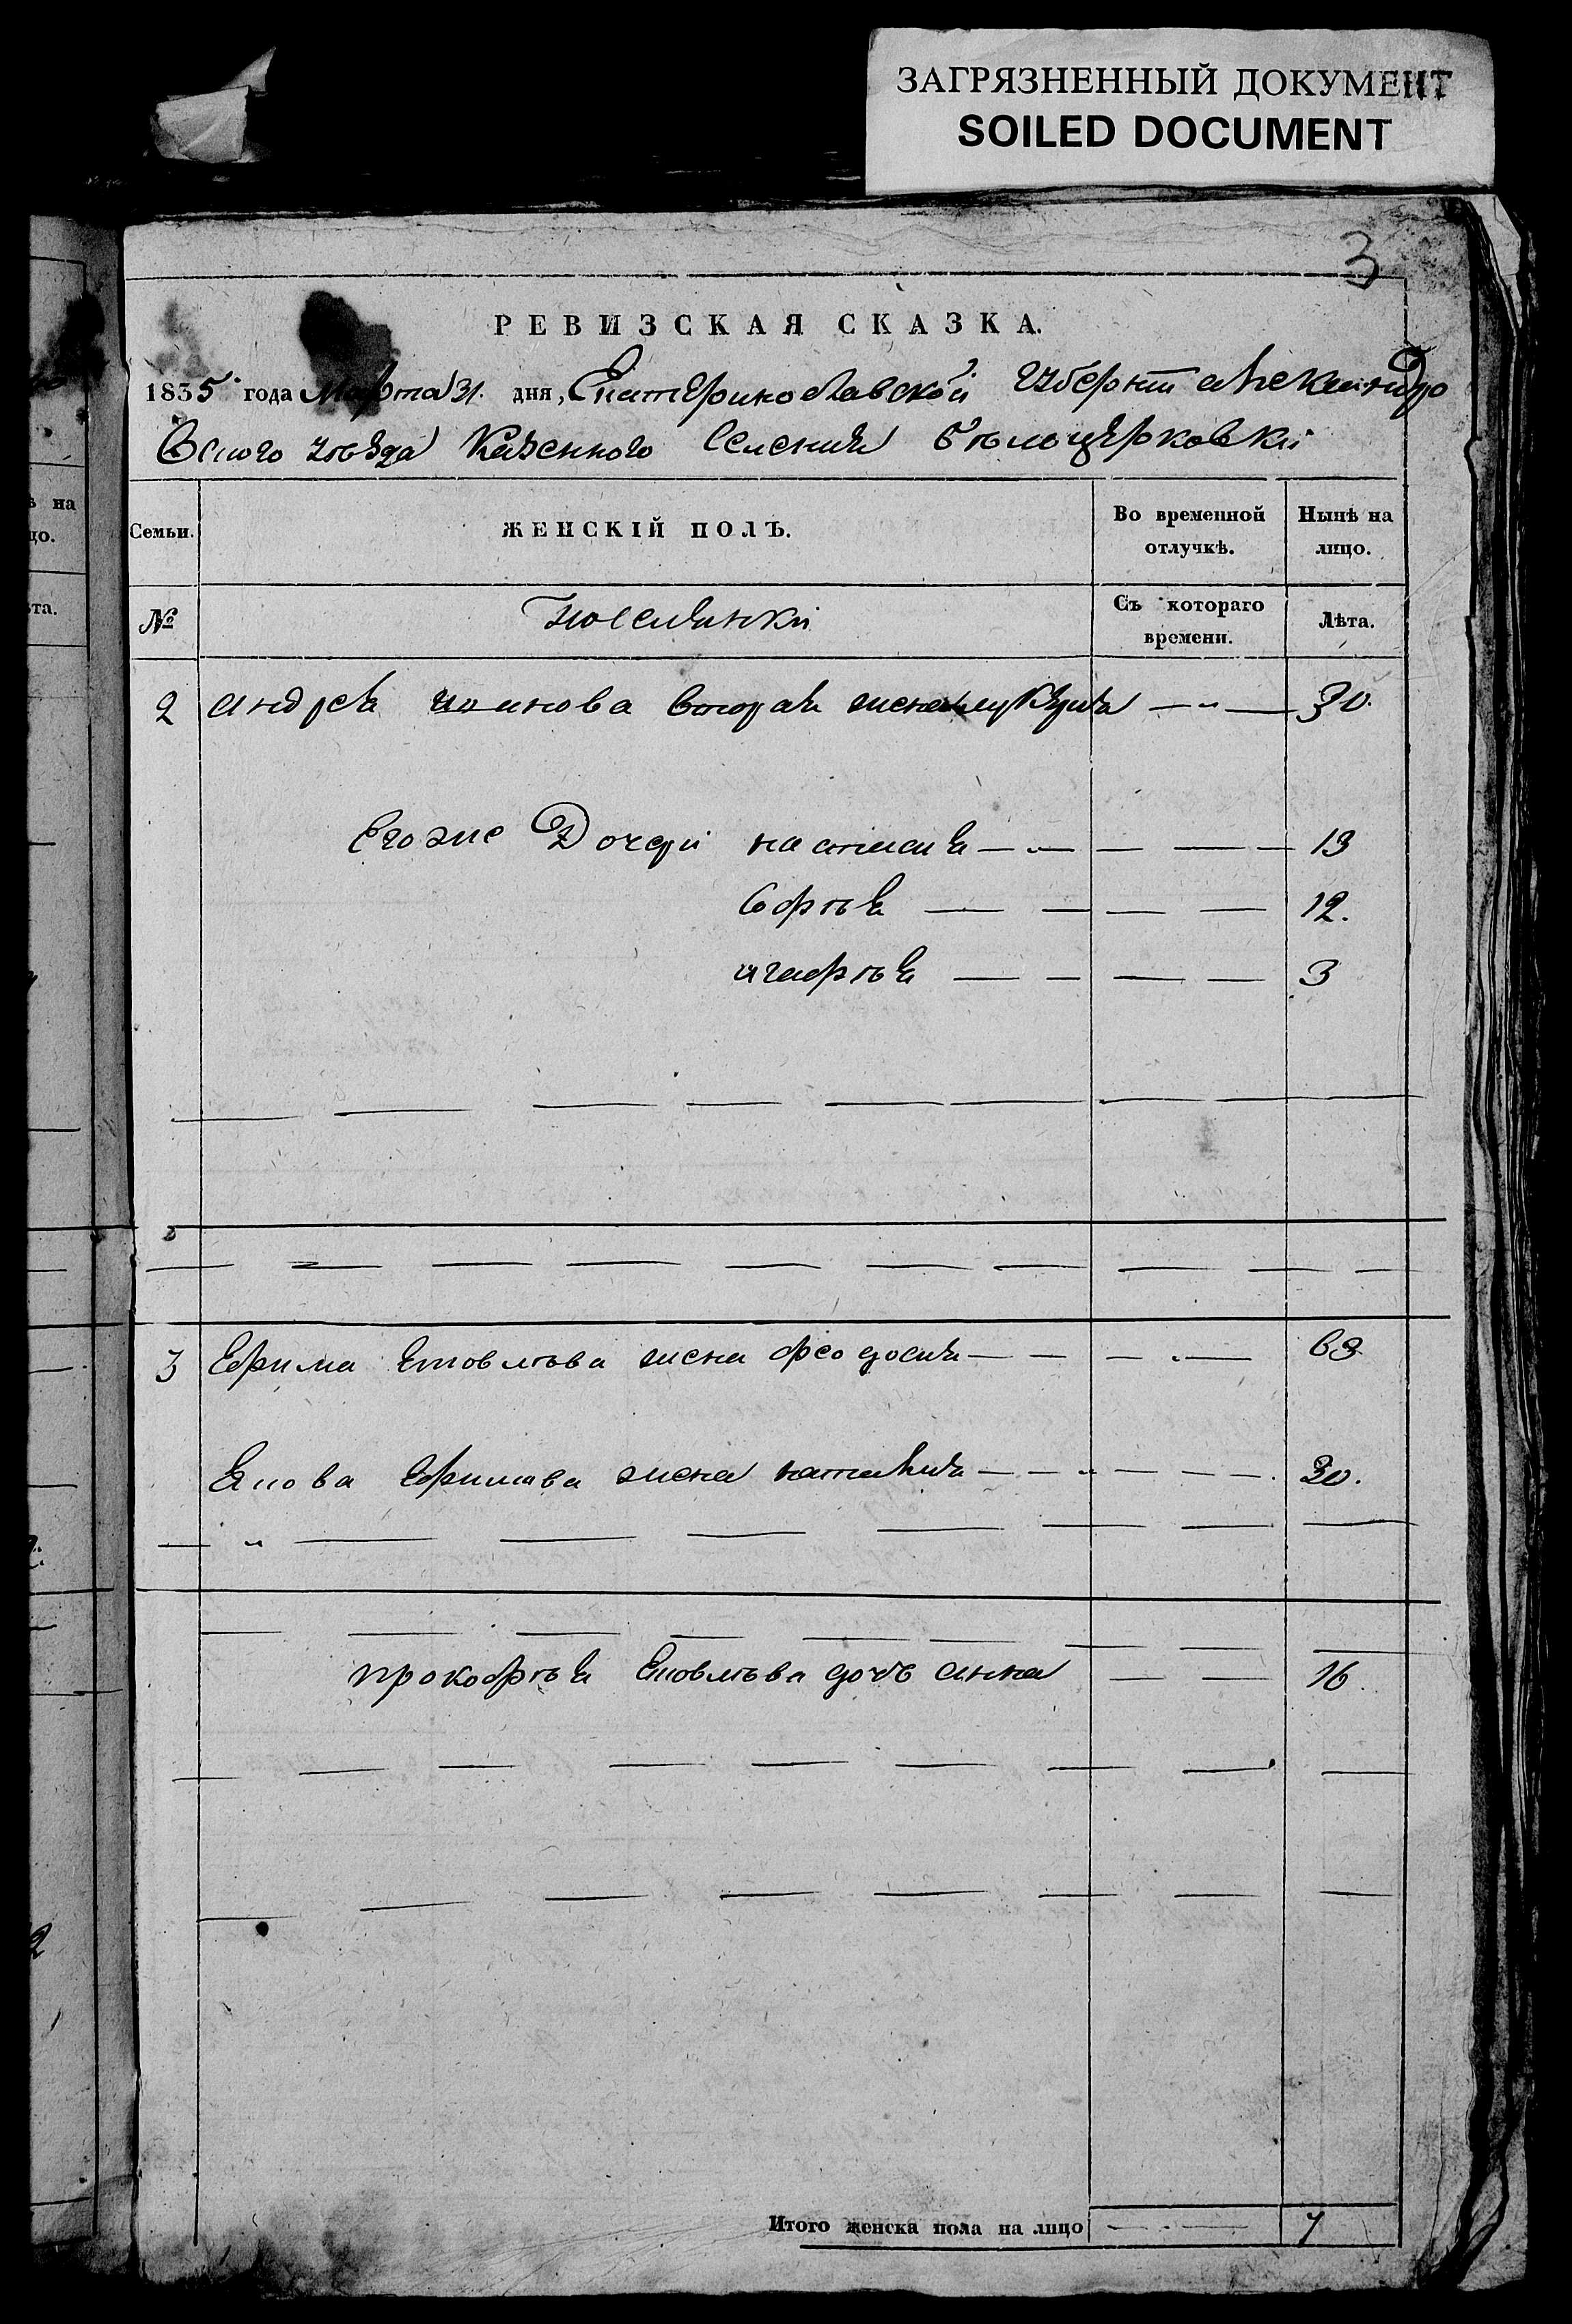 ЗАГРЯЗНЕННЫЙ ДОКУМЕНТ
SOILED DOCUMENT
3
РЕВИЗСКАЯ СКАЗКА.
1835 года Марта 31. дня, Екатеринославской Губерніи Александро
вского уѣзда Казенного Селения Бѣлоцерковки
Семьи.
ЖЕНСКІЙ ПОЛЪ.
Во временной отлучкѣ.
Нынѣ на лицо.
№
Поселянки
Съ котораго времени.
Лѣта.
2 Андрея вторая жена 30.
Его же Дочери настасия 13
Софѣя 12.
агафѣя 3
3 Ефима жена феодосия 63
Якова Ефимова жена наталия 30.
прокофѣя дочь анна 16.
Итого женска пола на лицо 7
ѣ на
цо.
ѣта.